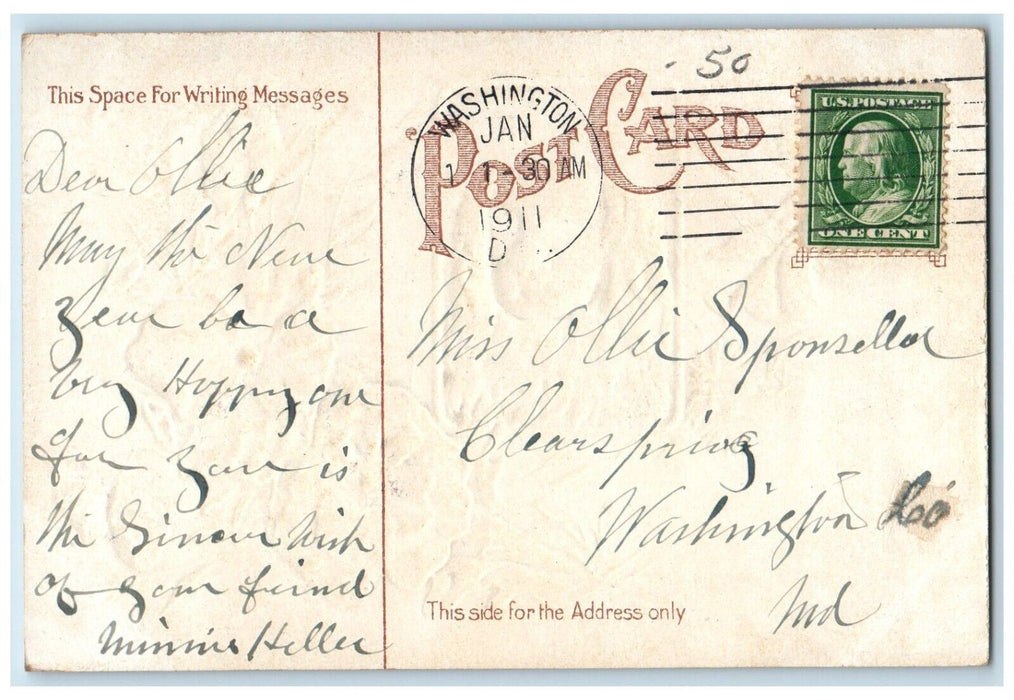 This Space For Writing Messages
Dear Ollie
May the New
Year be a
very Happy one
for your is
the Sincere wish
of your friend
Minnie Heller
POST CARD
WASHINGTON
JAN
1 1-30 AM
1911
D
- 50
U.S. POSTAGE
ONE CENT
Miss Ollie Sponseller
Clearspring
Washington Co
Md
This side for the Address only